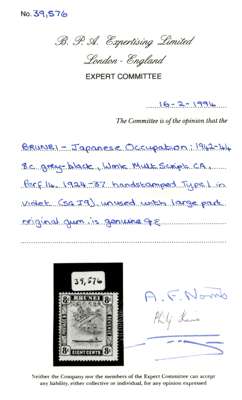 No. 39,576
B. P. A. Expertising Limited
London - England
EXPERT COMMITTEE
16-2-1994
The Committee is of the opinion that the
BRUNEI - Japanese Occupation: 1942-44
8c grey-black, Wmk Mult Script CA,
Perf 14, 1924-37 handstamped Type 1 in
violet (SG J9), unused with large part
original gum, is genuine
39,576
BRUNEI
8c 8c
EIGHT CENTS
Neither the Company nor the members of the Expert Committee can accept
any liability, either collective or individual, for any opinion expressed